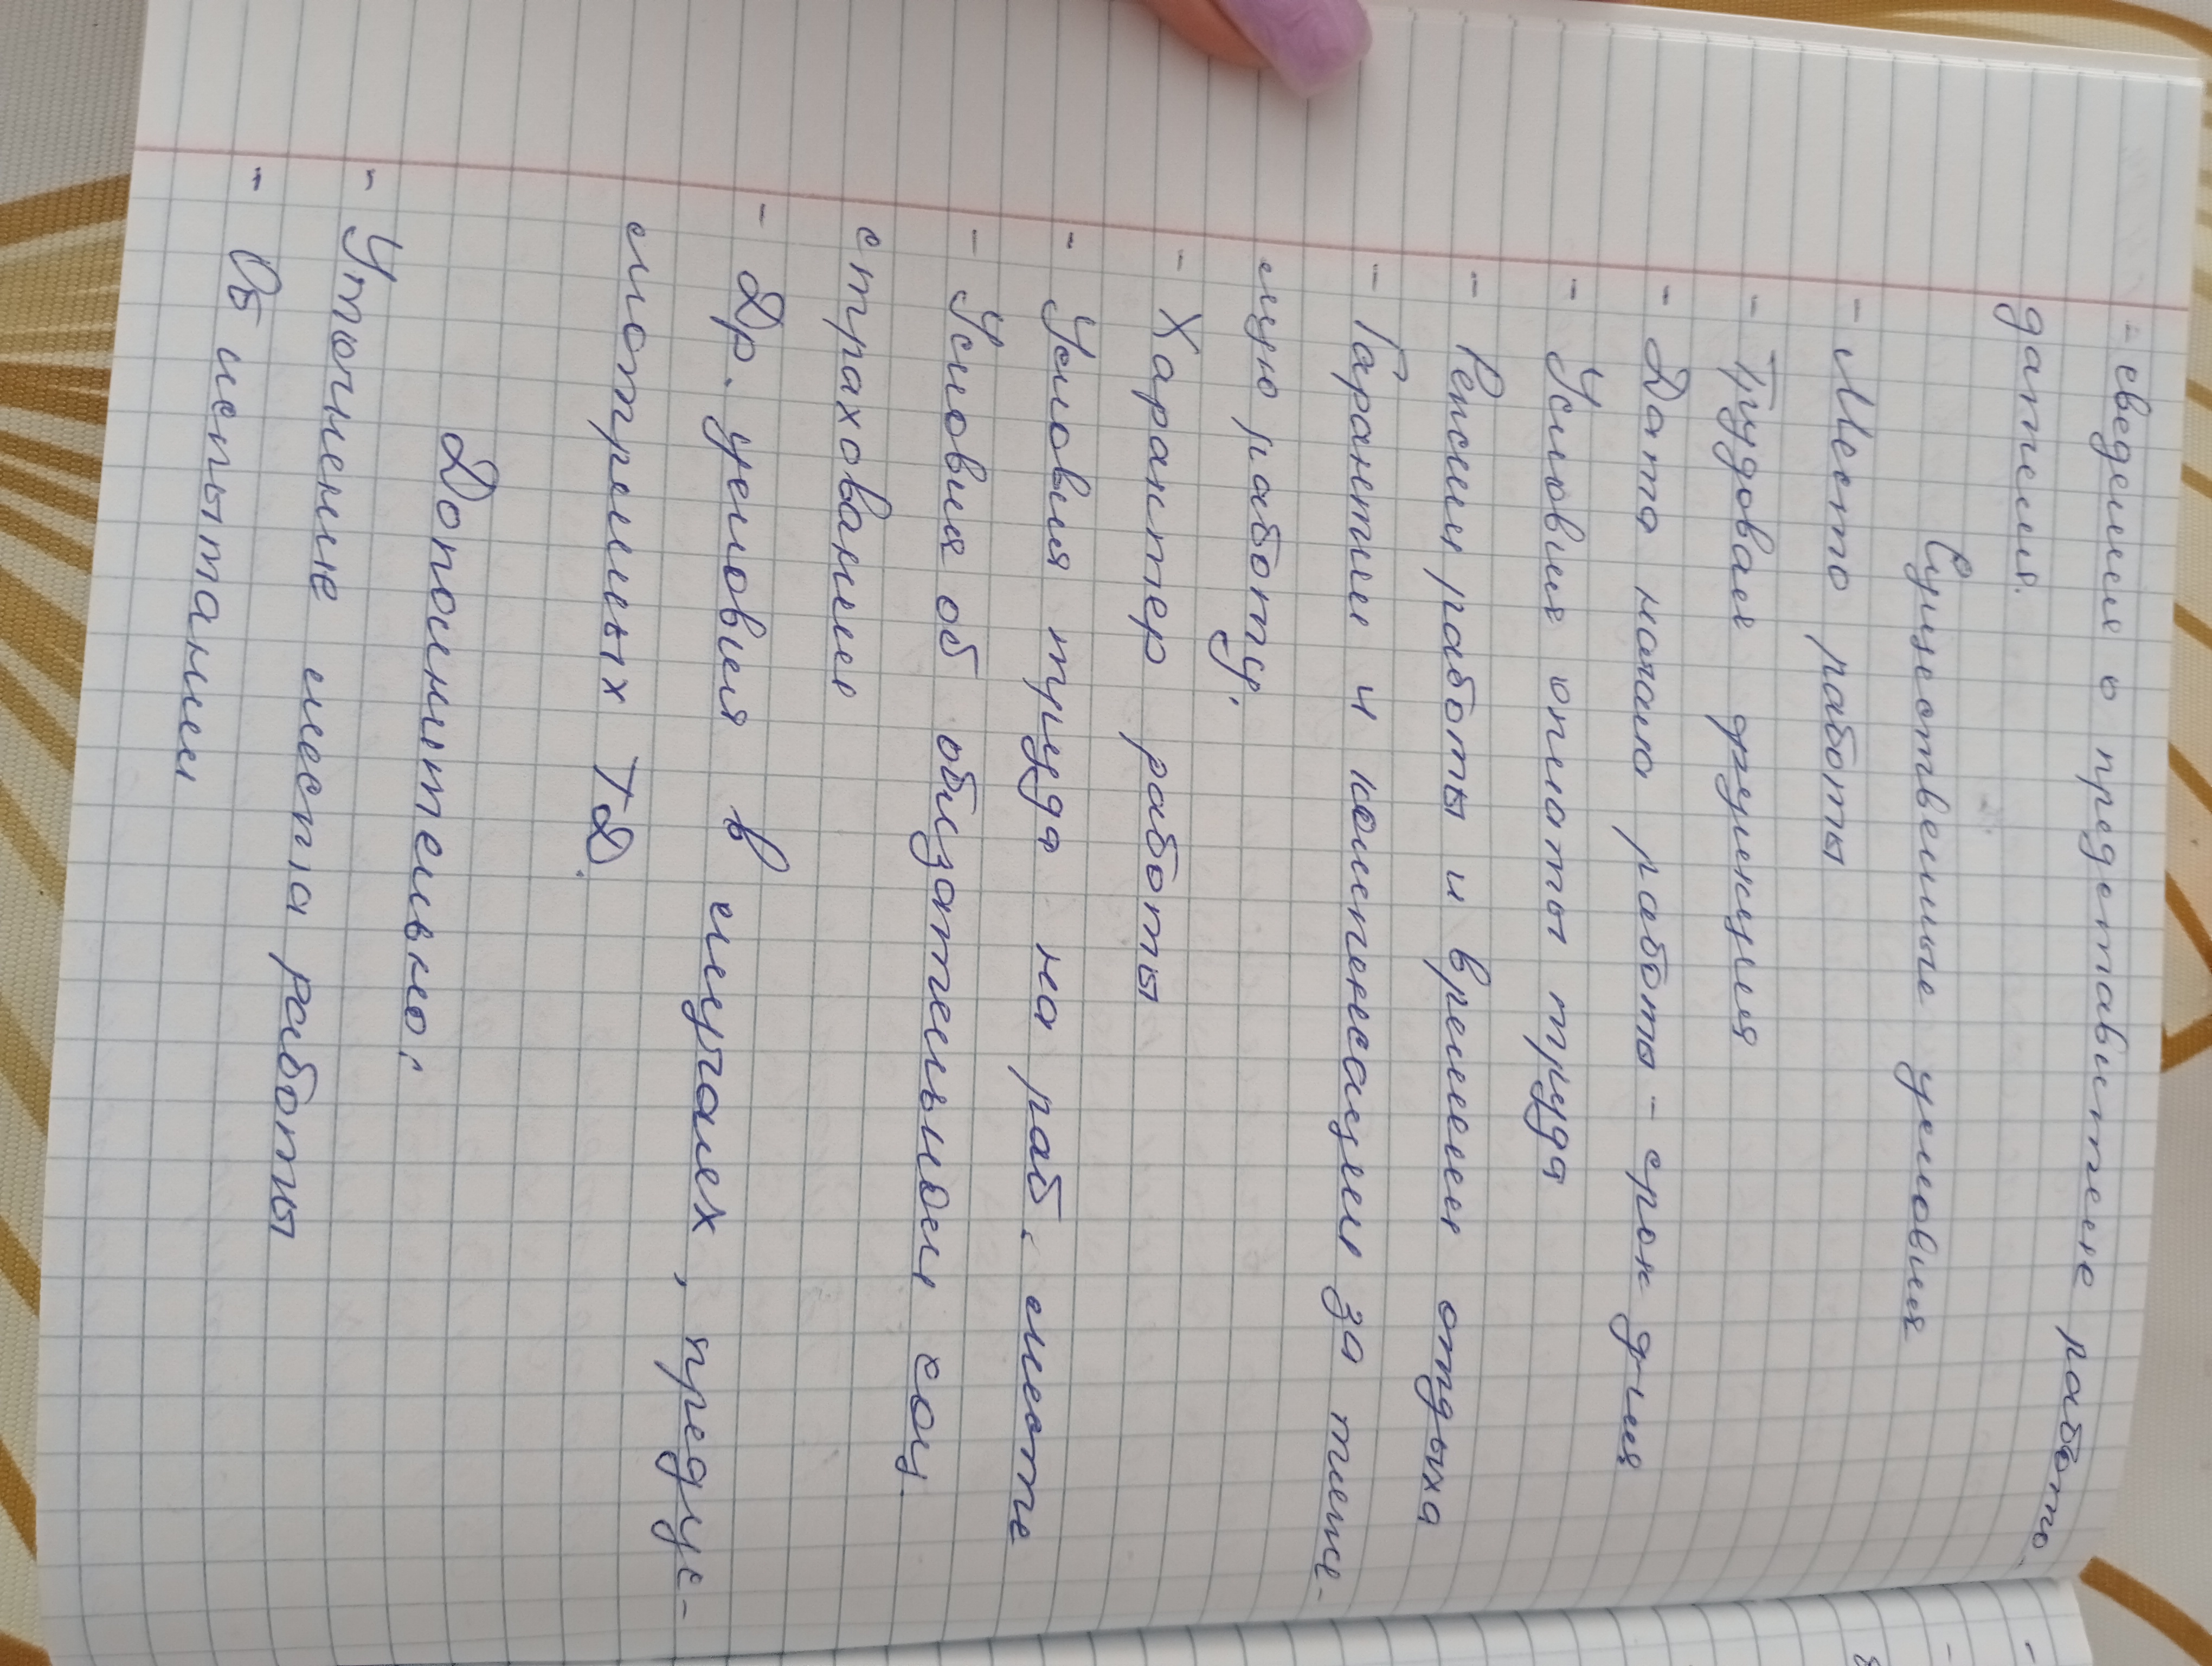 - сведения о представителе работо
дателя.
Существенные условия
- Место работы
- Трудовая функция
- Дата начала работы - срок д-ия
- Условие оплаты труда
- Режим работы и времени отдыха
- Гарантии и компенсации за тяже-
лую работу.
- Характер работы
- Условия труда на раб. месте
- Условия об обязательном соц.
страховании
- Др. условия в случаях, предус-
мотренных ТД.
Дополнительно:
- Уточнение места работы
- Об испытании